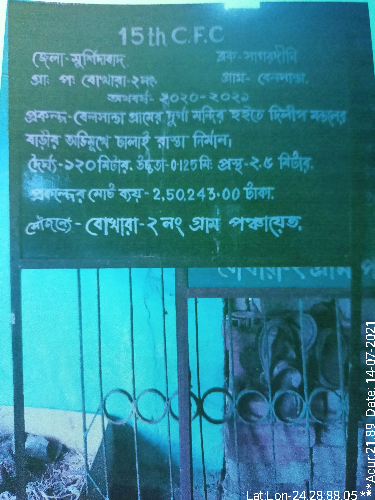 15th C.F.C
জেলা-মুর্শিদাবাদ ব্লক-সাগরদীঘি
গ্রাঃ পাঃ বোখারা-২নং গ্রাম- বেলসান্ডা.
অর্থবর্ষ- ২০২০-২০২১
প্রকল্প-বেলসান্ডা গ্রামের দুর্গা মন্দির হইতে দিলীপ মন্ডলের
বাড়ীর অভিমুখে ঢালাই রাস্তা নির্মান,
দৈর্ঘ্য-১২০মিটার. উচ্চতা-০.125মিঃ প্রস্থ-২.৫ মিটার.
প্রকল্পের মোট ব্যয়-2,50,243.00 টাকা.
সৌজন্যে-বোখারা-২নং গ্রাম পঞ্চায়েত.
বোখারা-২ গ্রাম প
Lat:Lon-24.29:88.05 ***Acur:21.89 Date:14-07-2021